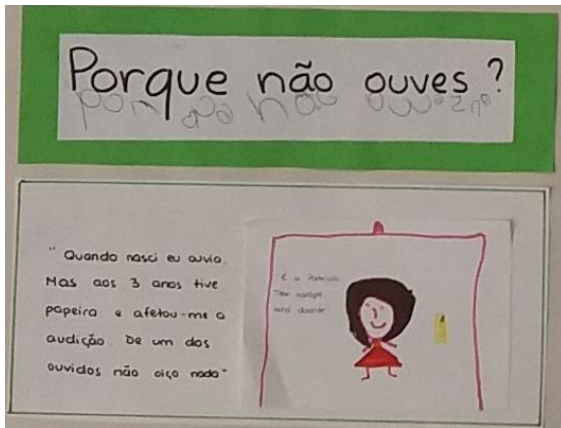 Porque não ouves?
" Quando nasci eu ouvia.
Mas aos 3 anos tive
papeira e afetou-me a
audição. De um dos
ouvidos não oiço nada"
É a